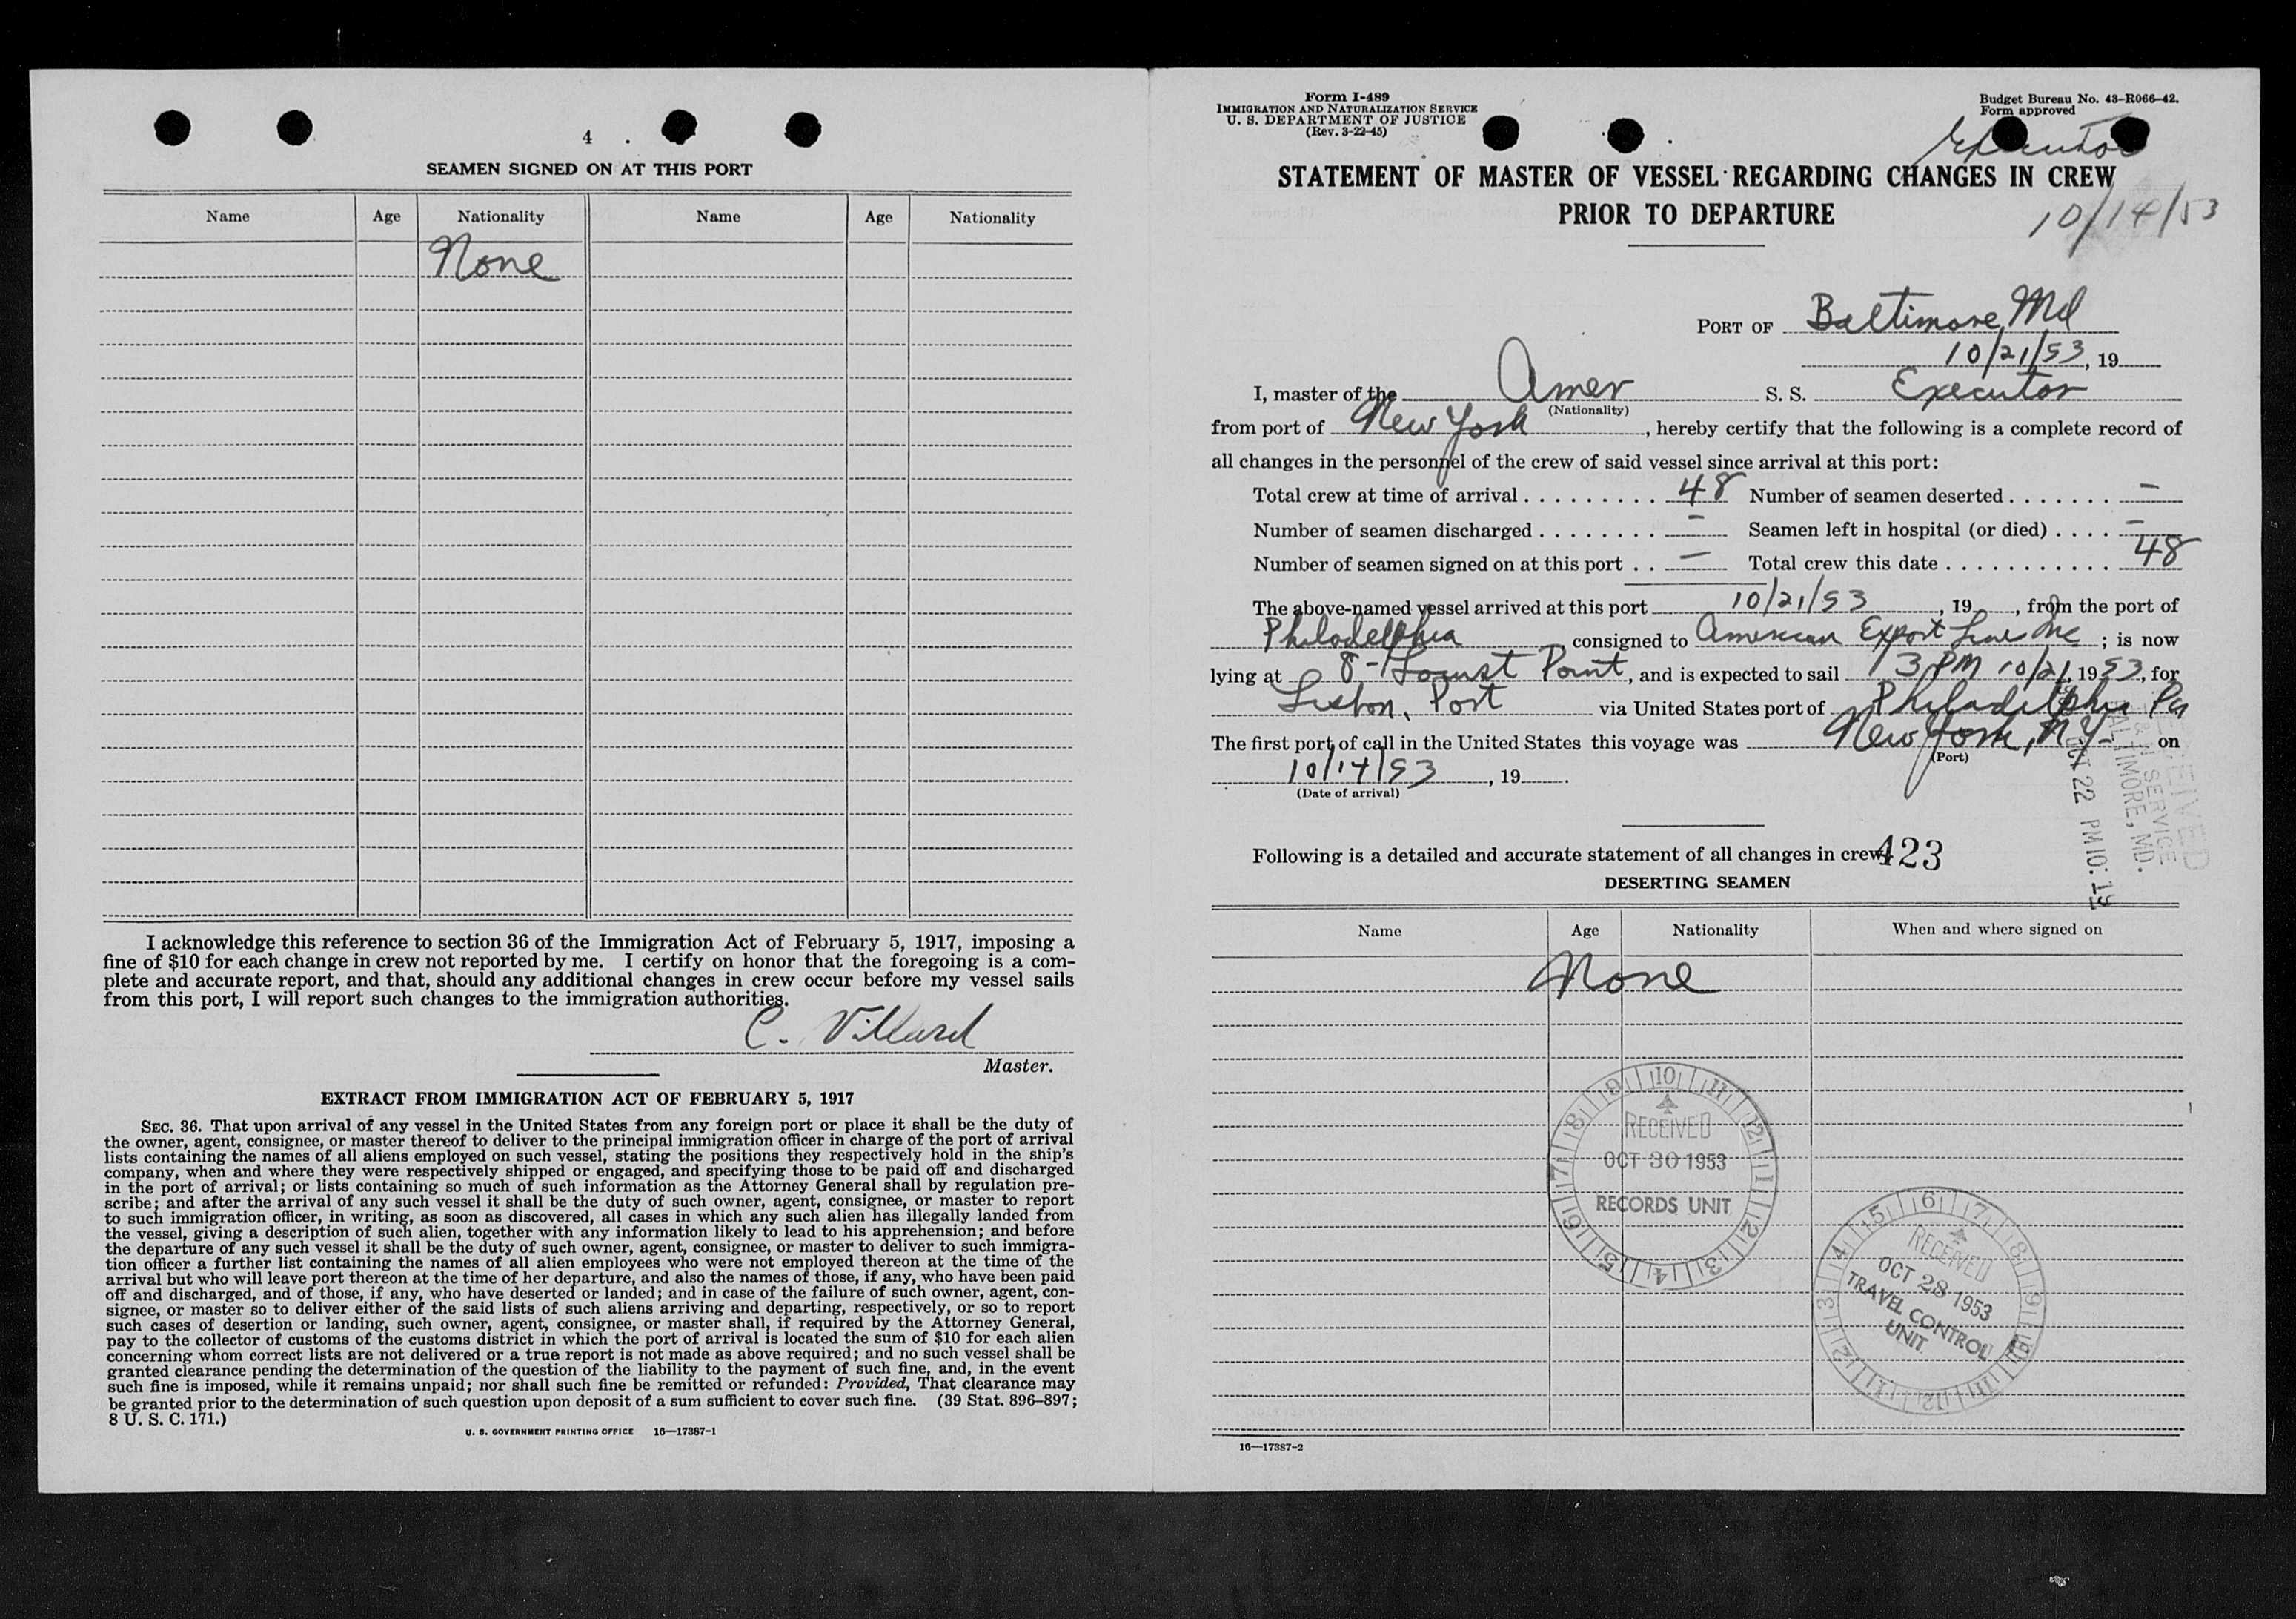 4
SEAMEN SIGNED ON AT THIS PORT
Name Age Nationality Name Age Nationality
None
I acknowledge this reference to section 36 of the Immigration Act of February 5, 1917, imposing a
fine of $10 for each change in crew not reported by me. I certify on honor that the foregoing is a com-
plete and accurate report, and that, should any additional changes in crew occur before my vessel sails
from this port, I will report such changes to the immigration authorities.
C. Villard
Master.
EXTRACT FROM IMMIGRATION ACT OF FEBRUARY 5, 1917
SEC. 36. That upon arrival of any vessel in the United States from any foreign port or place it shall be the duty of
the owner, agent, consignee, or master thereof to deliver to the principal immigration officer in charge of the port of arrival
lists containing the names of all aliens employed on such vessel, stating the positions they respectively hold in the ship's
company, when and where they were respectively shipped or engaged, and specifying those to be paid off and discharged
in the port of arrival; or lists containing so much of such information as the Attorney General shall by regulation pre-
scribe; and after the arrival of any such vessel it shall be the duty of such owner, agent, consignee, or master to report
to such immigration officer, in writing, as soon as discovered, all cases in which any such alien has illegally landed from
the vessel, giving a description of such alien, together with any information likely to lead to his apprehension; and before
the departure of any such vessel it shall be the duty of such owner, agent, consignee, or master to deliver to such immigra-
tion officer a further list containing the names of all alien employees who were not employed thereon at the time of the
arrival but who will leave port thereon at the time of her departure, and also the names of those, if any, who have been paid
off and discharged, and of those, if any, who have deserted or landed; and in case of the failure of such owner, agent, con-
signee, or master so to deliver either of the said lists of such aliens arriving and departing, respectively, or so to report
such cases of desertion or landing, such owner, agent, consignee, or master shall, if required by the Attorney General,
pay to the collector of customs of the customs district in which the port of arrival is located the sum of $10 for each alien
concerning whom correct lists are not delivered or a true report is not made as above required; and no such vessel shall be
granted clearance pending the determination of the question of the liability to the payment of such fine, and, in the event
such fine is imposed, while it remains unpaid; nor shall such fine be remitted or refunded: Provided, That clearance may
be granted prior to the determination of such question upon deposit of a sum sufficient to cover such fine. (39 Stat. 896-897;
8 U. S. C. 171.)
U. S. GOVERNMENT PRINTING OFFICE 16—17387-1
Form I-489
IMMIGRATION AND NATURALIZATION SERVICE
U. S. DEPARTMENT OF JUSTICE
(Rev. 3-22-45)
Budget Bureau No. 43-R066-42.
Form approved
Executor
STATEMENT OF MASTER OF VESSEL REGARDING CHANGES IN CREW
PRIOR TO DEPARTURE
10/14/53
PORT OF Baltimore, Md
10/21/53, 19
I, master of the Amer S. S. Executor
(Nationality)
from port of New York, hereby certify that the following is a complete record of
all changes in the personnel of the crew of said vessel since arrival at this port:
Total crew at time of arrival . . . . . . . . . 48 Number of seamen deserted . . . . . . . —
Number of seamen discharged . . . . . . . . — Seamen left in hospital (or died) . . . . —
Number of seamen signed on at this port . . — Total crew this date . . . . . . . . . . . . 48
The above-named vessel arrived at this port 10/21/53, 19, from the port of
Philadelphia consigned to American Export Line Inc; is now
lying at 8-Locust Point, and is expected to sail 3 PM 10/21, 1953, for
Lisbon, Port via United States port of Philadelphia Pa
The first port of call in the United States this voyage was New York, N.Y. on
(Port)
10/14/53, 19.
(Date of arrival)
RECEIVED
SERVICE
BALTIMORE, MD.
OCT 22 PM 10:19
Following is a detailed and accurate statement of all changes in crew
423
DESERTING SEAMEN
Name Age Nationality When and where signed on
None
RECEIVED
OCT 30 1953
RECORDS UNIT
10 11 12 1 2 3 4 5 6 7 8 9
RECEIVED
OCT 28 1953
TRAVEL CONTROL
UNIT
16—17387-2